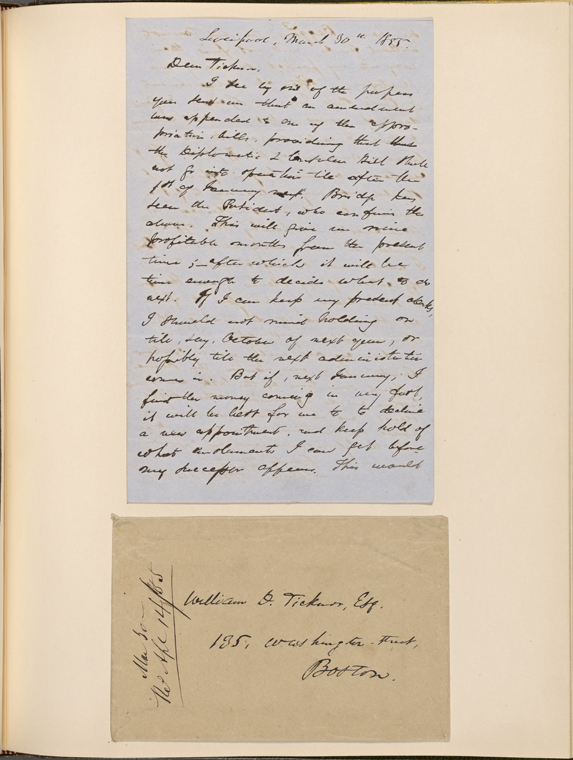 Liverpool, March 30th 1855.
Dear Ticknor,
I see by one of the papers
you sent me that an amendment
was appended to one of the appro-
priation bills, providing that
the Diplomatic & Consular Bill shall
not go into operation till after the
1st of January next. Bridge has
seen the President, who confirms the
above. This will give me nine
profitable months from the present
time; after which it will be
time enough to decide what to do
next. If I can keep my present clerks,
I should not mind holding on
till, say, October of next year, or
possibly till the next administration
comes in. But if, next January, I
find the money coming in very fast,
it will be best for me to to decline
a new appointment, and keep hold of
what emoluments I can get before
my successor appears. This would
William D. Ticknor, Esq.
135, Washington-street,
Boston.
Mar 30 —
Recd Apl 14/55